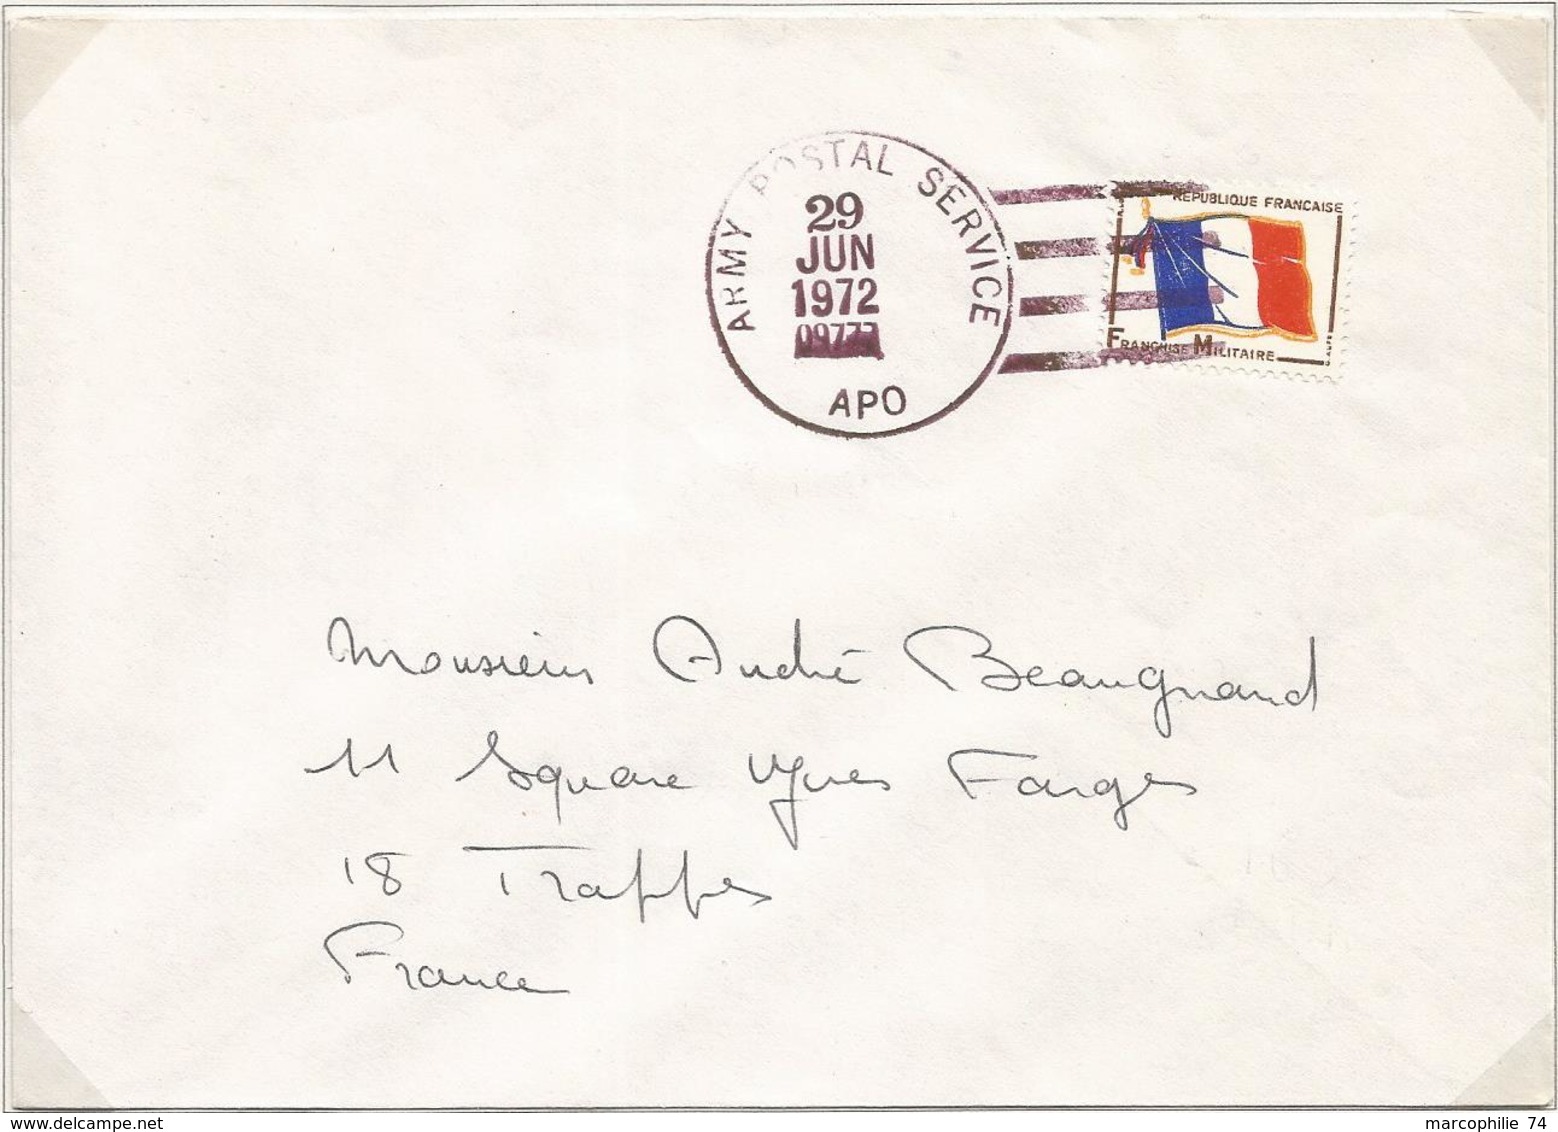 ARMY POSTAL SERVICE
29
JUN
1972
APO
REPUBLIQUE FRANCAISE
FRANCHISE MILITAIRE
Monsieur André Beaugnard
11 Square Yves Farges
18 Trappes
France
www.delcampe.net
marcophilie 74